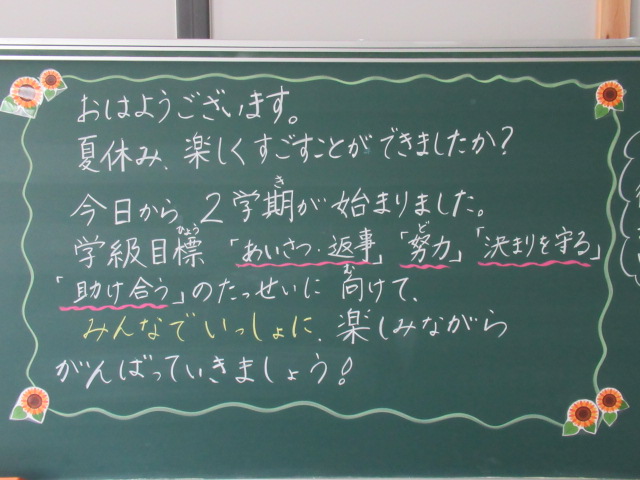 おはようございます。
夏休み、楽しくすごすことができましたか？
今日から、2学期が始まりました。
学級目標「あいさつ・返事」「努力」「決まりを守る」
「助け合う」のたっせいに向けて、
みんなでいっしょに、楽しみながら
がんばっていきましょう！